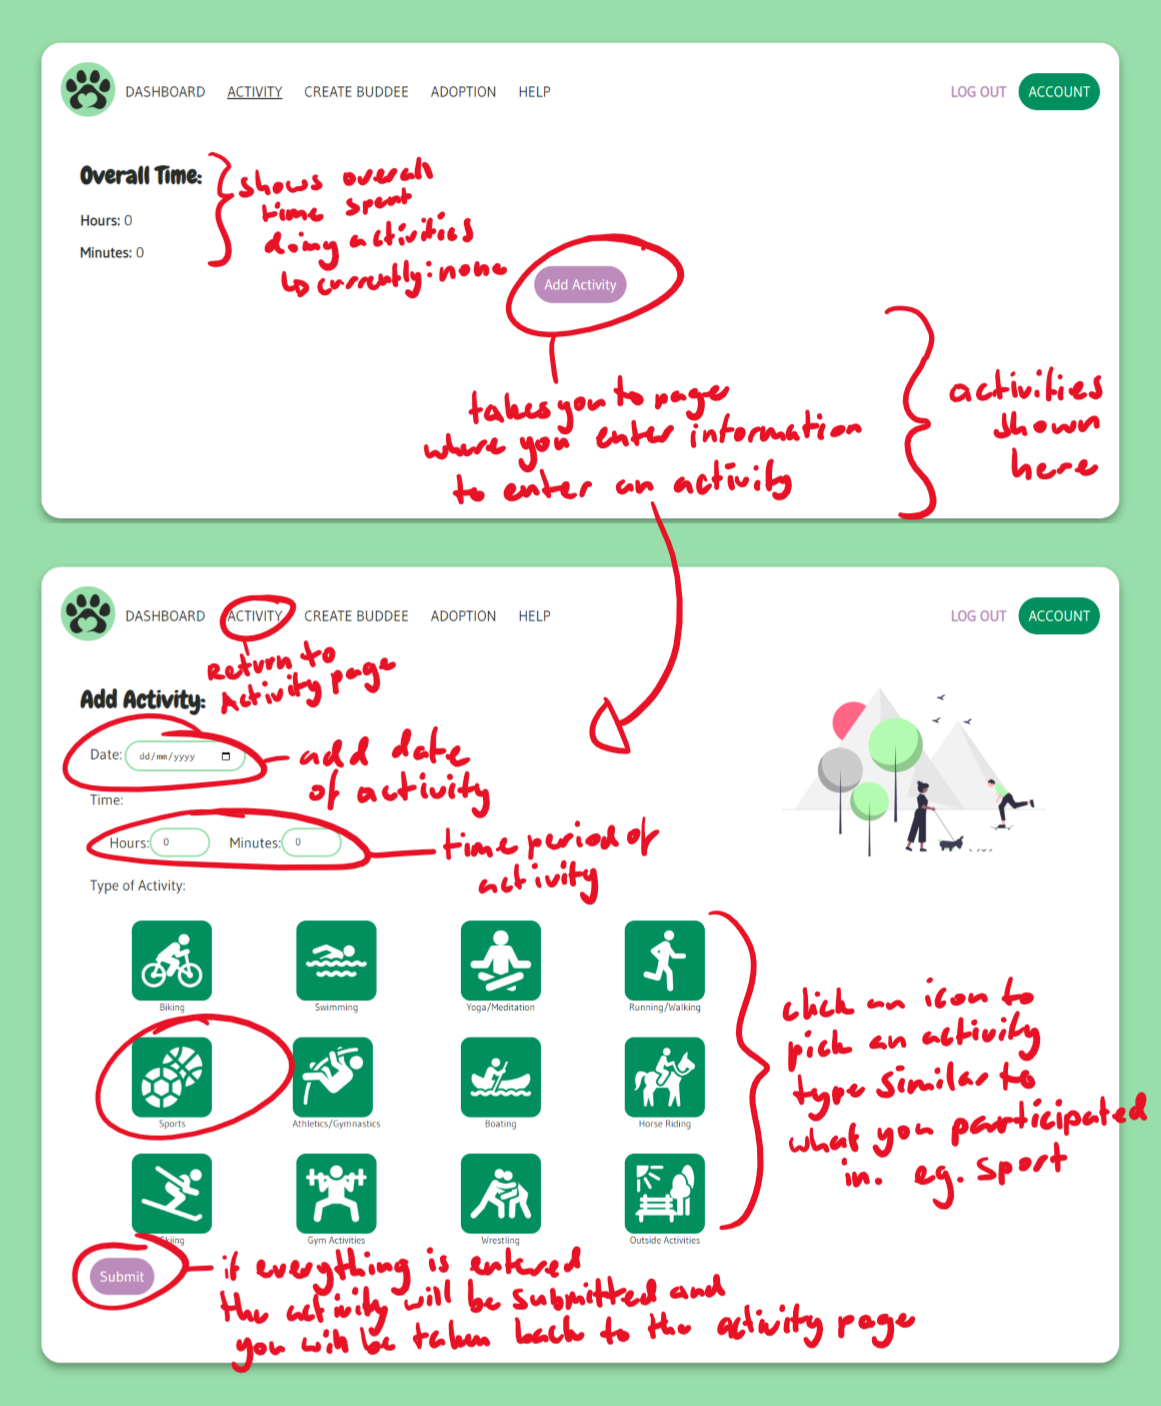 DASHBOARD ACTIVITY CREATE BUDDEE ADOPTION HELP LOG OUT ACCOUNT
Overall Time:
Hours: 0
Minutes: 0
shows overall
time spent
doing activities
↳ currently: none
Add Activity
takes you to page
where you enter information
to enter an activity
activities
shown
here
DASHBOARD ACTIVITY CREATE BUDDEE ADOPTION HELP LOG OUT ACCOUNT
Return to
Activity page
Add Activity:
Date: dd/mm/yyyy
add date
of activity
Time:
Hours: 0 Minutes: 0
time period of
activity
Type of Activity:
Biking Swimming Yoga/Meditation Running/Walking
Sports Athletics/Gymnastics Boating Horse Riding
Skiing Gym Activities Wrestling Outside Activities
click an icon to
pick an activity
type similar to
what you participated
in. eg. sport
Submit
if everything is entered
the activity will be submitted and
you will be taken back to the activity page